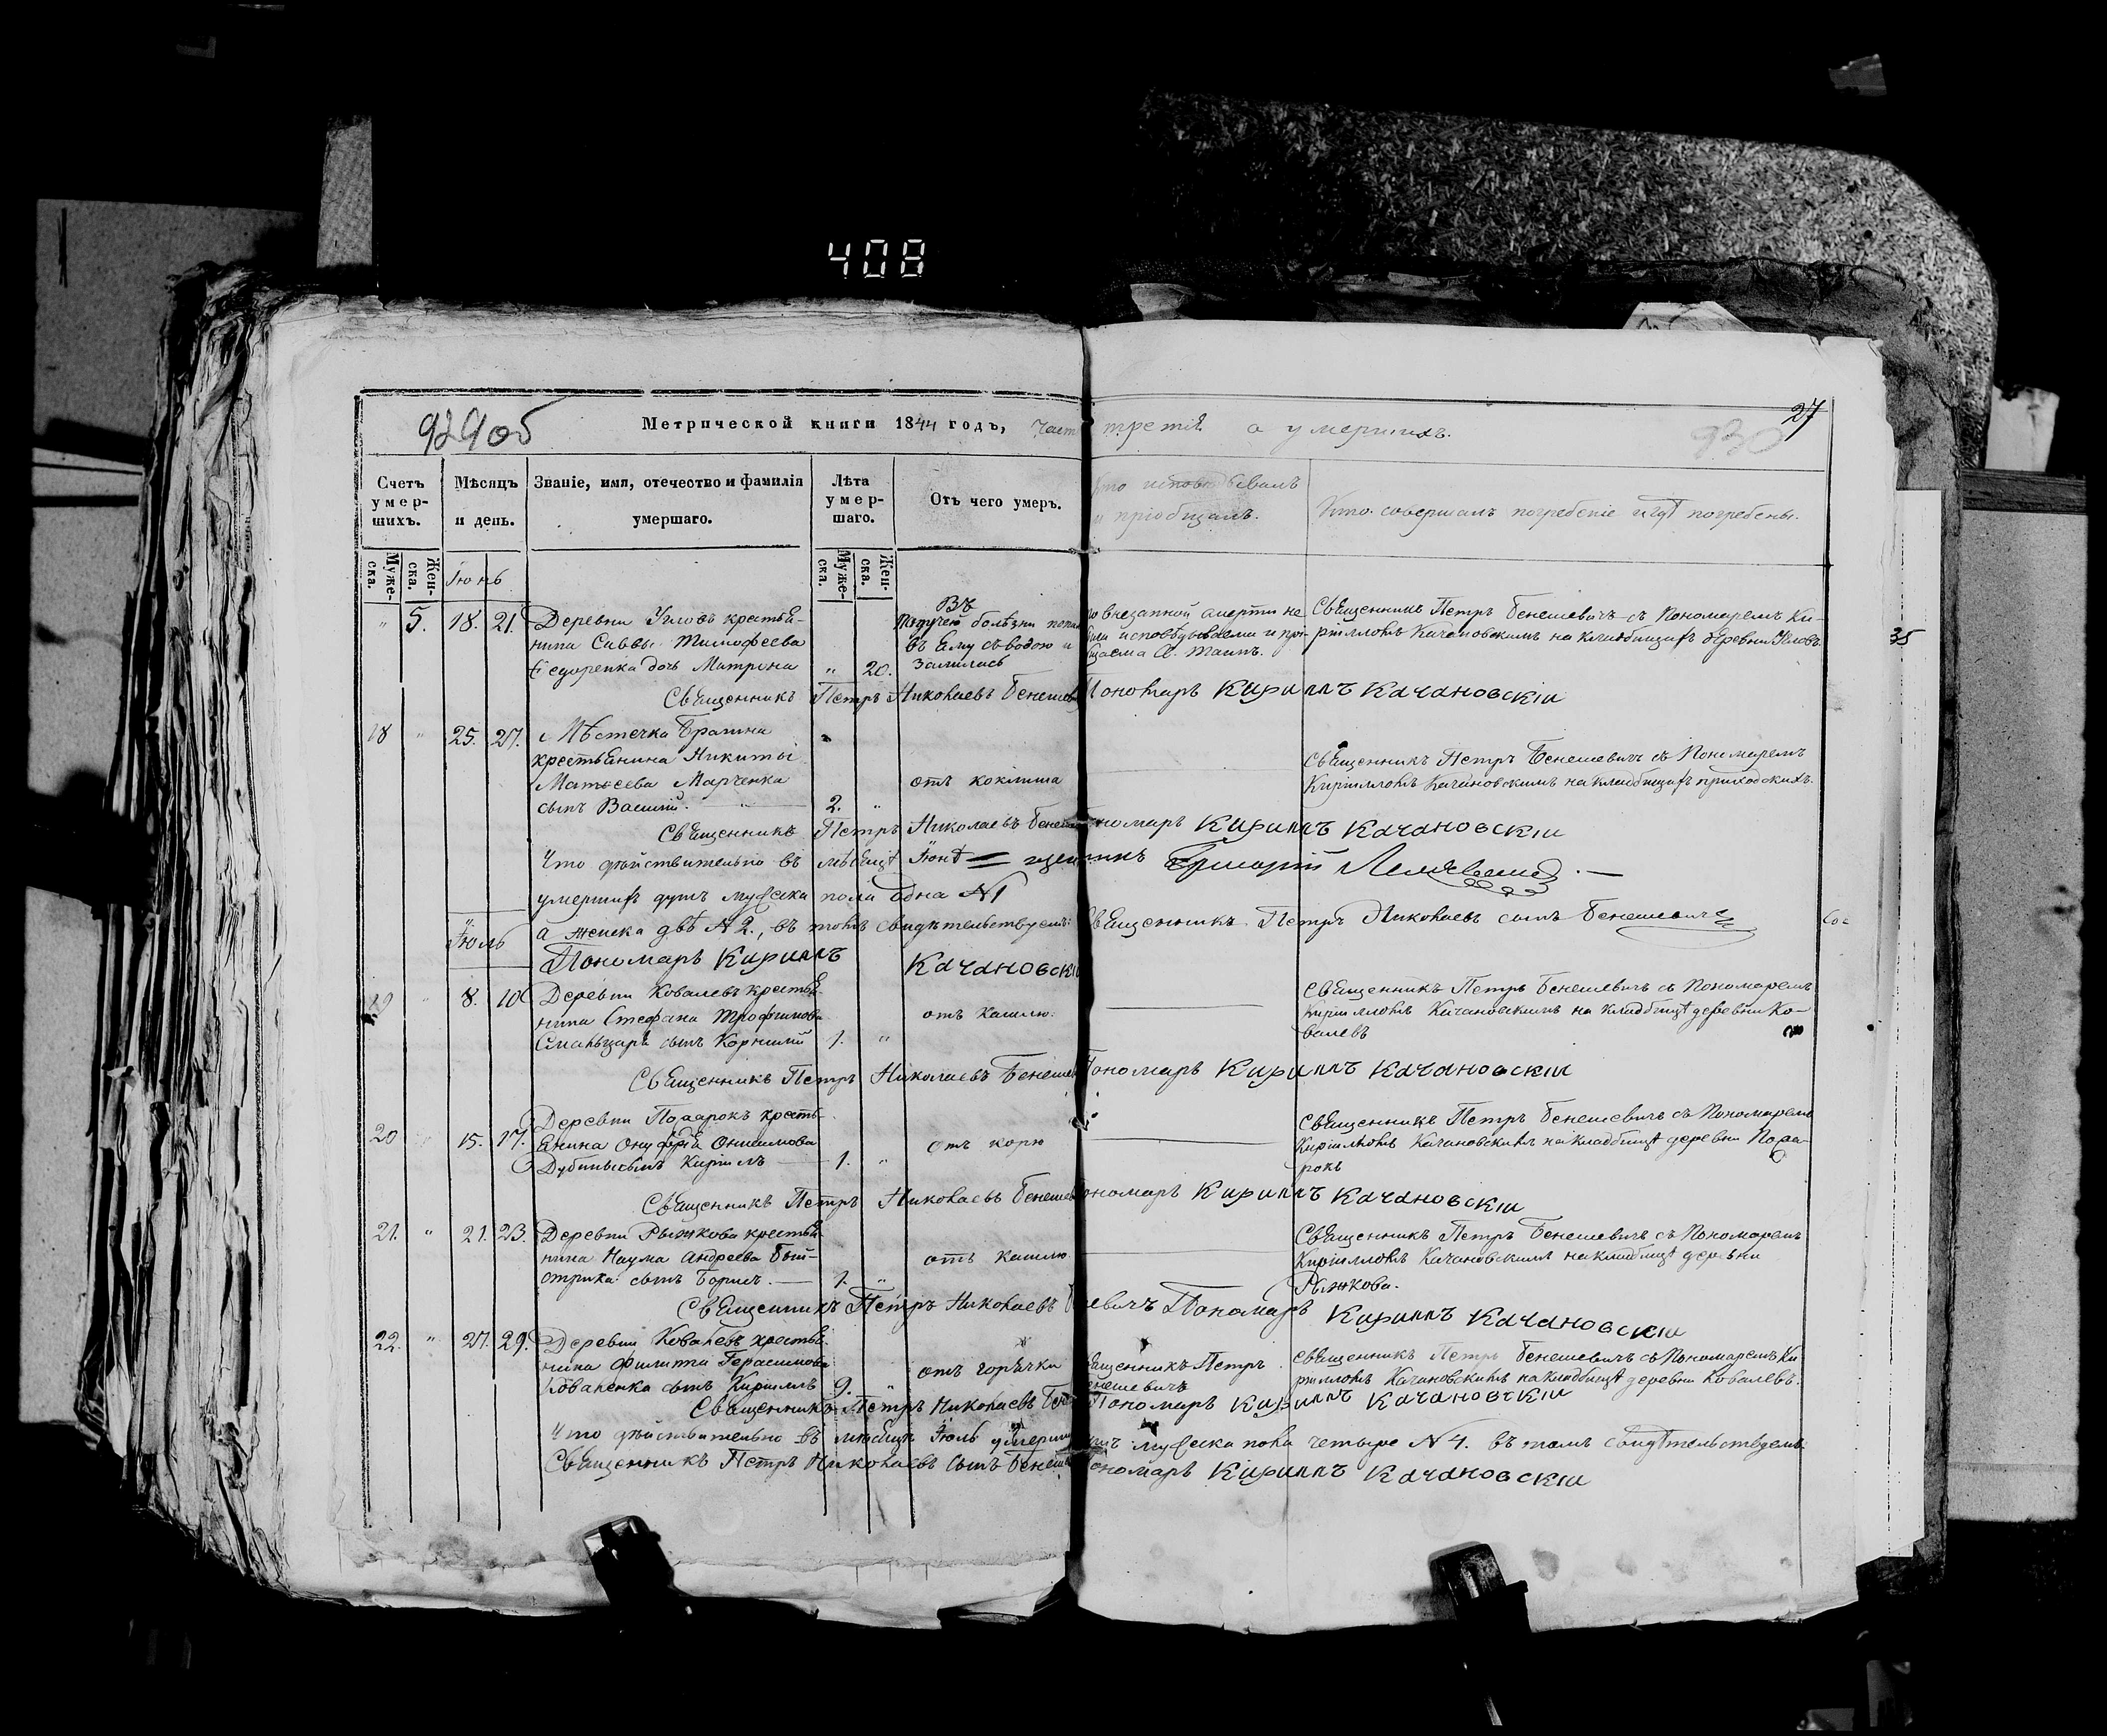 408
929 об
Метрической книги 1844 годъ, часть третія о умершихъ.
27
930
Счетъ умер-шихъ.
Мѣсяцъ и день.
Званіе, имя, отечество и фамилія умершаго.
Лѣта умер-шаго.
Отъ чего умеръ.
Кто исповѣдывалъ и пріобщалъ.
Кто совершалъ погребеніе и гдѣ погребены.
Муже-ска.
Жен-ска.
Іюнь
Муже-ска.
Жен-ска.
" 5. 18. 21.
Деревни Угловъ крестья-
нина Саввы Тимофеева
Федоренка дочь Матрона " 20.
Въ
болѣзни
въ яму съ водою и
залилась
по внезапной смерти не
исповѣдываема и прі-
щаема С. Таинъ.
Священникъ Петръ Бенешевичъ съ Пономаремъ Ки-
рилломъ Качановскимъ на кладбищѣ деревни Угловъ.
35
Священникъ Петръ Николаевъ Бенешев Пономарь Кириллъ Качановскій
18 " 25. 27.
Мѣстечка Брагина
крестьянина Никиты
Матвеева Марченка
сынъ Василій. " 2. "
отъ коклиша
Священникъ Петръ Бенешевичъ съ Пономаремъ
Кирилломъ Качановскимъ на кладбищѣ приходскихъ.
Священникъ Петръ Николаевъ Бенеш Пономарь Кириллъ Качановскій
Что дѣйствительно въ мѣсяцѣ Іюнѣ = Григорій
умершихъ душъ мужеска пола одна №1
а женска двѣ №2., въ томъ свидѣтельствуемъ: Священникъ Петръ Николаевъ сынъ Бенешевичъ
Іюль
Пономарь Кириллъ Качановскій
19 " 8. 10
Деревни Ковалевъ крестья-
нина Стефана Трофимова
сынъ Корнилій 1. "
отъ кашлю.
Священникъ Петръ Бенешевичъ съ Пономаремъ
Кирилломъ Качановскимъ на кладбищѣ деревни Ко-
валевъ
Священникъ Петръ Николаевъ Бенешев Пономарь Кириллъ Качановскій
20 15. 17.
Деревни крестъ-
янина Онуфрія Онисимова
Дубины сынъ Кириллъ 1. "
отъ корю
Священникъ Петръ Бенешевичъ съ Пономаремъ
Кирилломъ Качановскимъ на кладбищѣ деревни
рокъ
Священникъ Петръ Николаевъ Бенешев Пономарь Кириллъ Качановскій
21. " 21. 23.
Деревни Рыжкова крестья-
нина Наума Андреева
сынъ Борисъ. 1. "
отъ кашлю
Священникъ Петръ Бенешевичъ съ Пономаремъ
Кирилломъ Качановскимъ на кладбищѣ деревни
Рыжкова.
Священникъ Петръ Николаевъ Бенешевичъ Пономарь Кириллъ Качановскій
22. " 27. 29.
Деревни Ковалевъ крестья-
нина Филипа Герасимова
Коваленка сынъ Кириллъ 9. "
отъ горячки
Священникъ Петръ
Бенешевичъ
Священникъ Петръ Бенешевичъ съ Пономаремъ Ки-
рилломъ Качановскимъ на кладбищѣ деревни Ковалевъ.
Священникъ Петръ Николаевъ Бене Пономарь Кириллъ Качановскій
Что дѣйствительно въ мѣсяцѣ Іюль умерших душъ мужеска пола четыре №4. въ томъ свидѣтельствуемъ:
Священникъ Петръ Николаевъ сынъ Бенеш Пономарь Кириллъ Качановскій